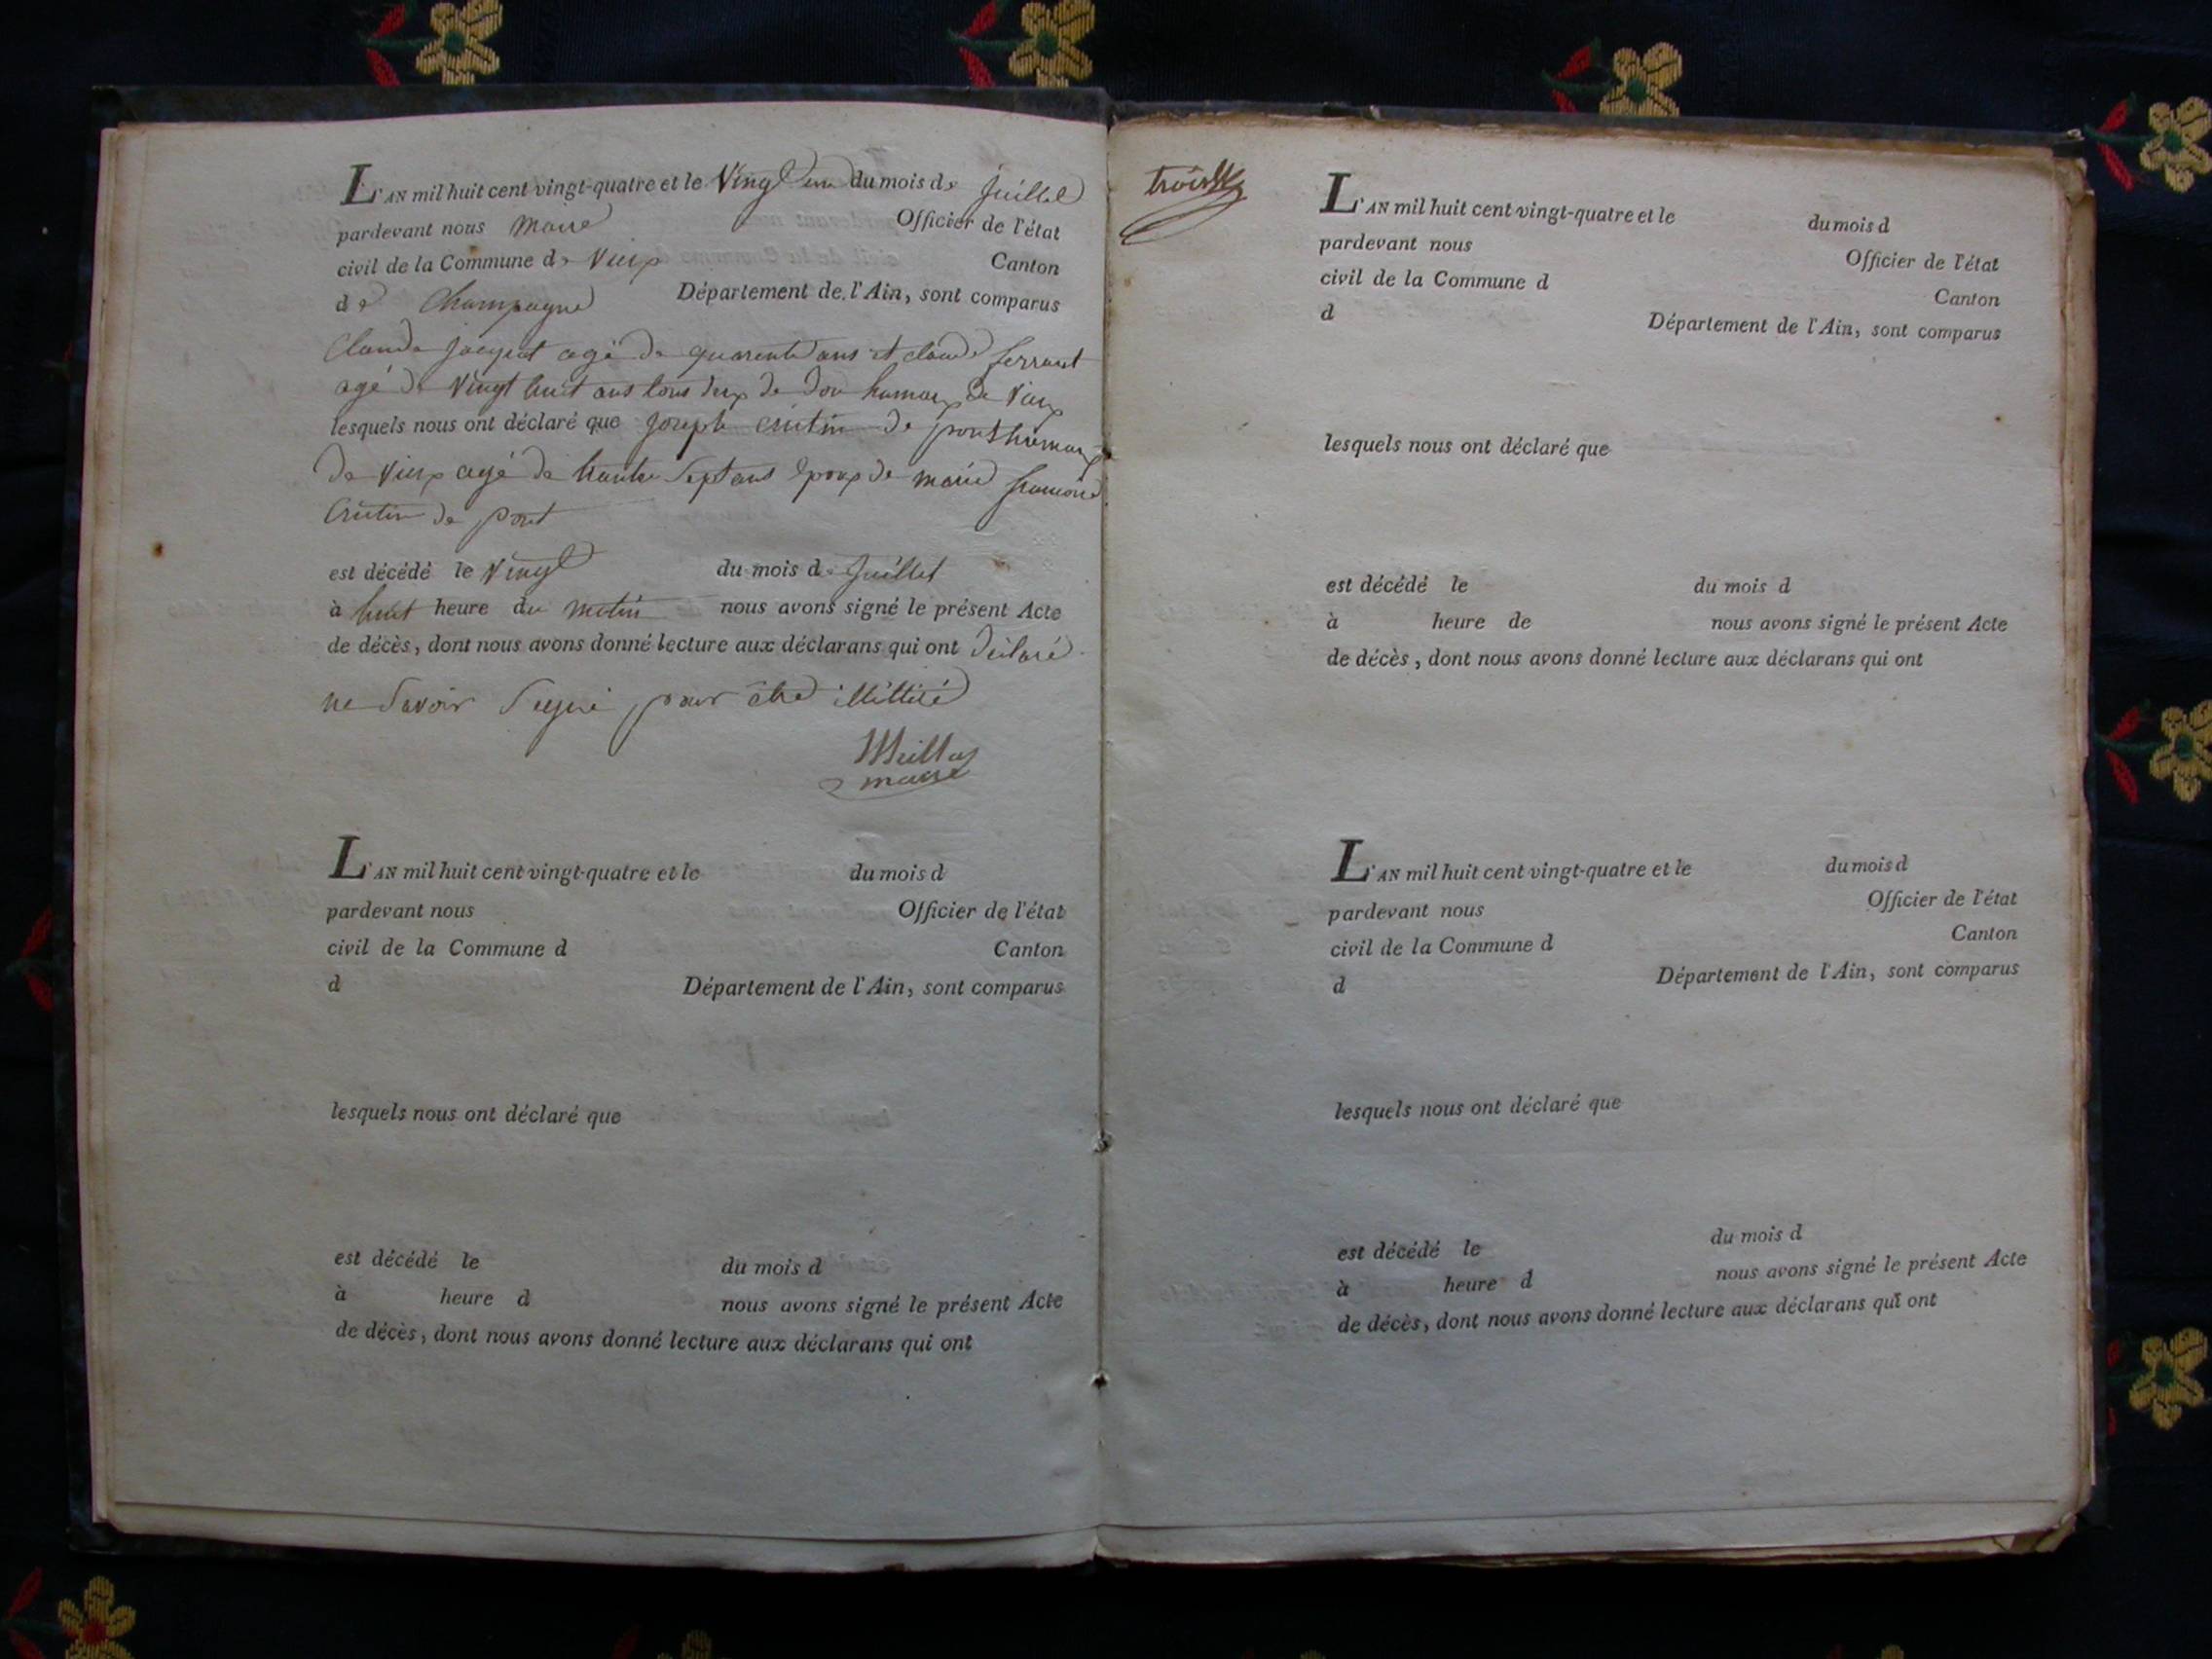 L'AN mil huit cent vingt-quatre et le Vingt un du mois de juillet
pardevant nous maire Officier de l'état
civil de la Commune de Vieux Canton
de Champagne Département de l'Ain, sont comparus
Claude jacquet agé de quarente ans et claude ferrant
agé de Vingt huit ans tous deux de hameaux de Vieux
lesquels nous ont déclaré que joseph crutin de pont hameaux
de Vieux agé de trente Sept ans Epoux de marie
Crutin de pont
est décédé le Vingt du mois de juillet
à huit heure du matin nous avons signé le présent Acte
de décès, dont nous avons donné lecture aux déclarans qui ont déclaré
ne Savoir Signé pour être illittré
maire
L'AN mil huit cent vingt-quatre et le du mois d
pardevant nous Officier de l'état
civil de la Commune d Canton
d Département de l'Ain, sont comparus
lesquels nous ont déclaré que
est décédé le du mois d
à heure d nous avons signé le présent Acte
de décès, dont nous avons donné lecture aux déclarans qui ont
L'AN mil huit cent vingt-quatre et le du mois d
pardevant nous Officier de l'état
civil de la Commune d Canton
d Département de l'Ain, sont comparus
lesquels nous ont déclaré que
est décédé le du mois d
à heure de nous avons signé le présent Acte
de décès, dont nous avons donné lecture aux déclarans qui ont
L'AN mil huit cent vingt-quatre et le du mois d
pardevant nous Officier de l'état
civil de la Commune d Canton
d Département de l'Ain, sont comparus
lesquels nous ont déclaré que
est décédé le du mois d
à heure d nous avons signé le présent Acte
de décès, dont nous avons donné lecture aux déclarans qui ont